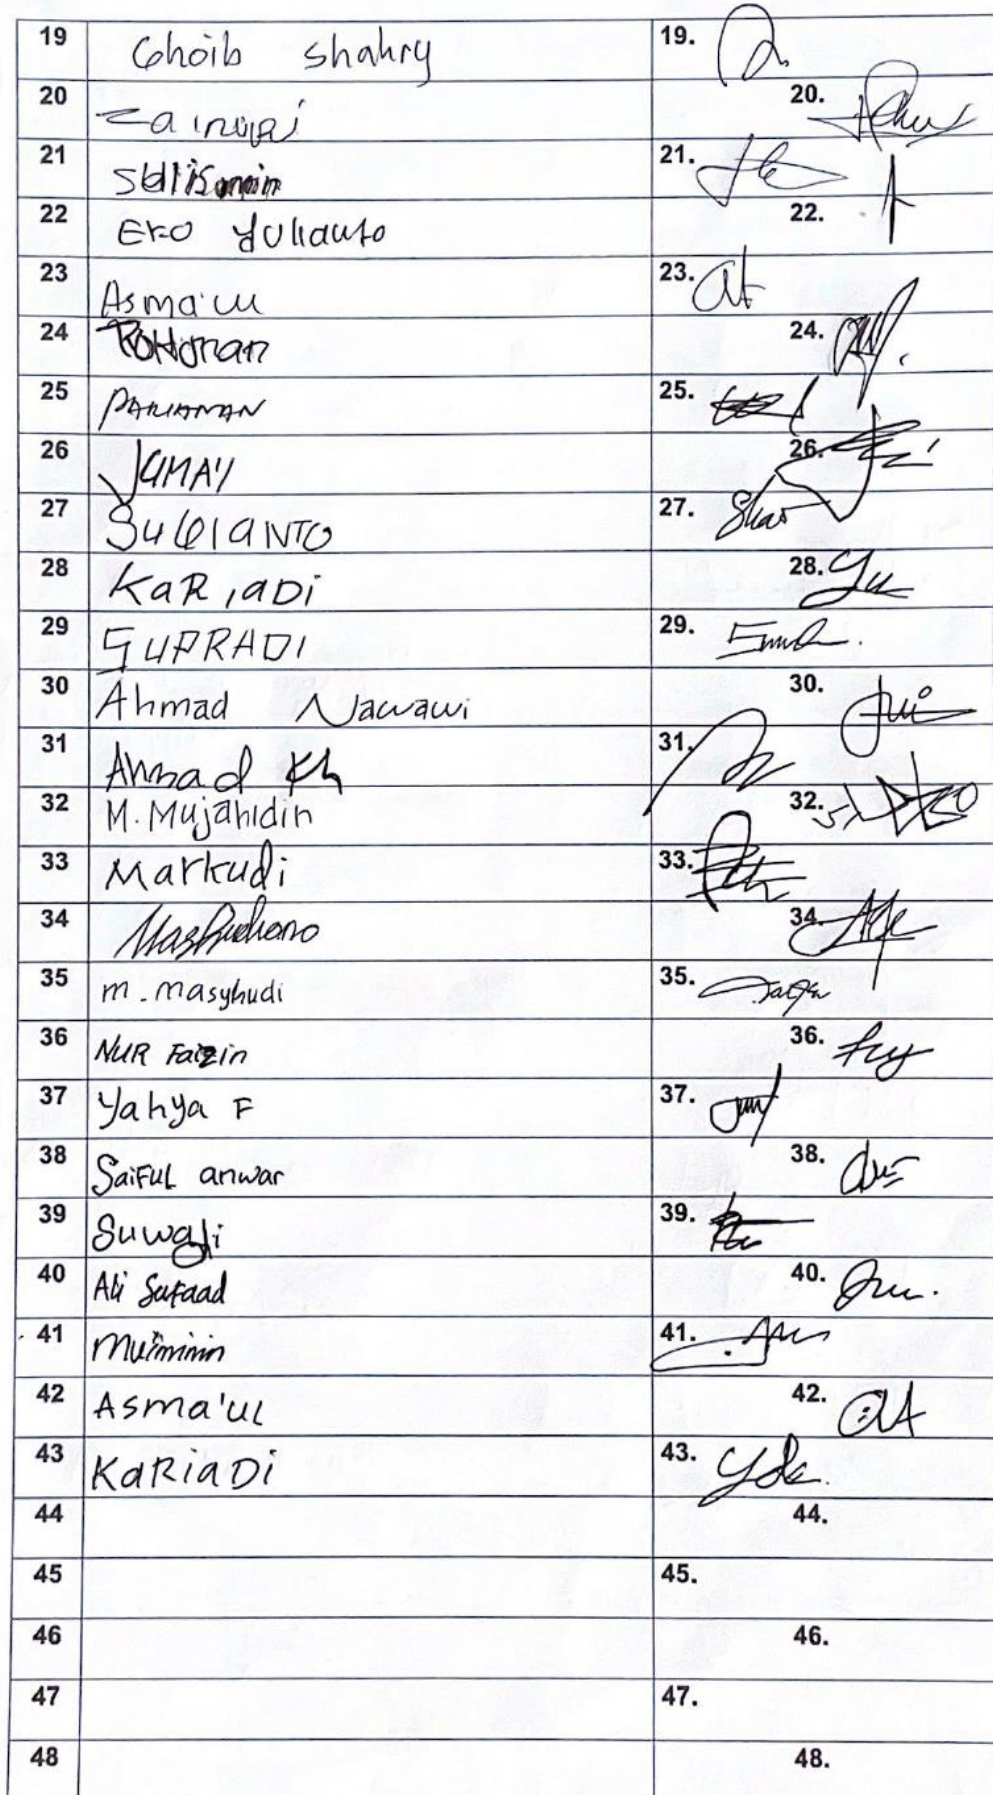 19 Ghoib Shahry 19.
20 20.
21 21.
22 Eko Yulianto 22.
23 Asma'ul 23.
24 Rohman 24.
25 PARIAMAN 25.
26 JUMA'I 26.
27 SUGIANTO 27.
28 KaRiaDi 28.
29 SUPRADI 29.
30 Ahmad Nawawi 30.
31 Ahmad Kh 31.
32 M. Mujahidin 32.
33 Markudi 33.
34 34.
35 m. masyhudi 35.
36 NUR Faizin 36.
37 Yahya F 37.
38 SaiFuL anwar 38.
39 Suwaji 39.
40 Ali 40.
41 mu'minin 41.
42 Asma'uL 42.
43 KaRiaDi 43.
44 44.
45 45.
46 46.
47 47.
48 48.